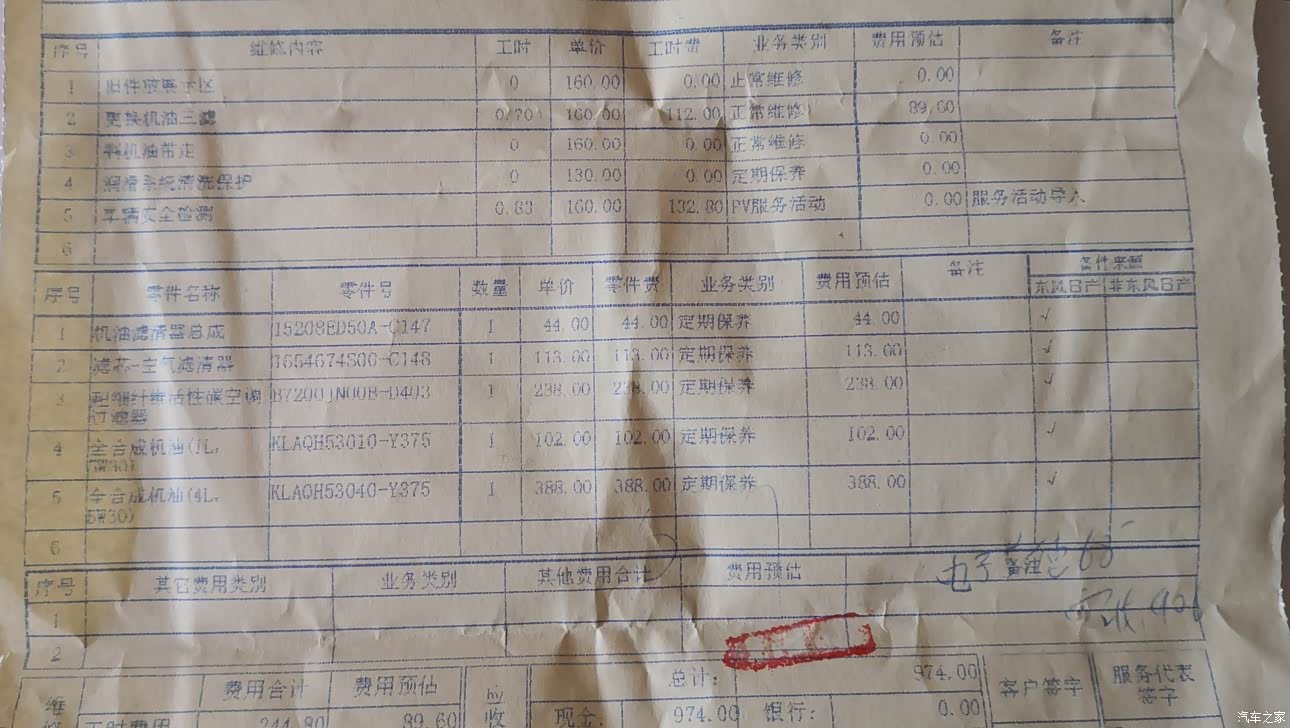 序号 维修内容 工时 单价 工时费 业务类别 费用预估 备注
1 旧件放展示区 0 160.00 0.00 正常维修 0.00
2 更换机油三滤 0.70 160.00 112.00 正常维修 89.60
3 剩机油带走 0 160.00 0.00 正常维修 0.00
4 润滑系统清洗保护 0 130.00 0.00 定期保养 0.00
5 车辆安全检测 0.83 160.00 132.80 PV服务活动 0.00 服务活动导入
6
序号 零件名称 零件号 数量 单价 零件费 业务类别 费用预估 备注 备件来源
东风日产 非东风日产
1 机油滤清器总成 15208ED50A-C147 1 44.00 44.00 定期保养 44.00 ✓
2 滤芯-空气滤清器 1654674S00-C148 1 113.00 113.00 定期保养 113.00 ✓
3 超细纤维活性碳空调 B7200JN00B-D403 1 238.00 238.00 定期保养 238.00 ✓
过滤器
4 全合成机油(1L, KLAQH53010-Y375 1 102.00 102.00 定期保养 102.00 ✓
5W30)
5 全合成机油(4L, KLAQH53040-Y375 1 388.00 388.00 定期保养 388.00 ✓
5W30)
6
序号 其它费用类别 业务类别 其他费用合计 费用预估 备注
电子
1
2
费用合计 费用预估 总计: 974.00 客户签字 服务代表
签字
维
修
工时费用 244.80 89.60 收 现金: 974.00 银行: 0.00
汽车之家